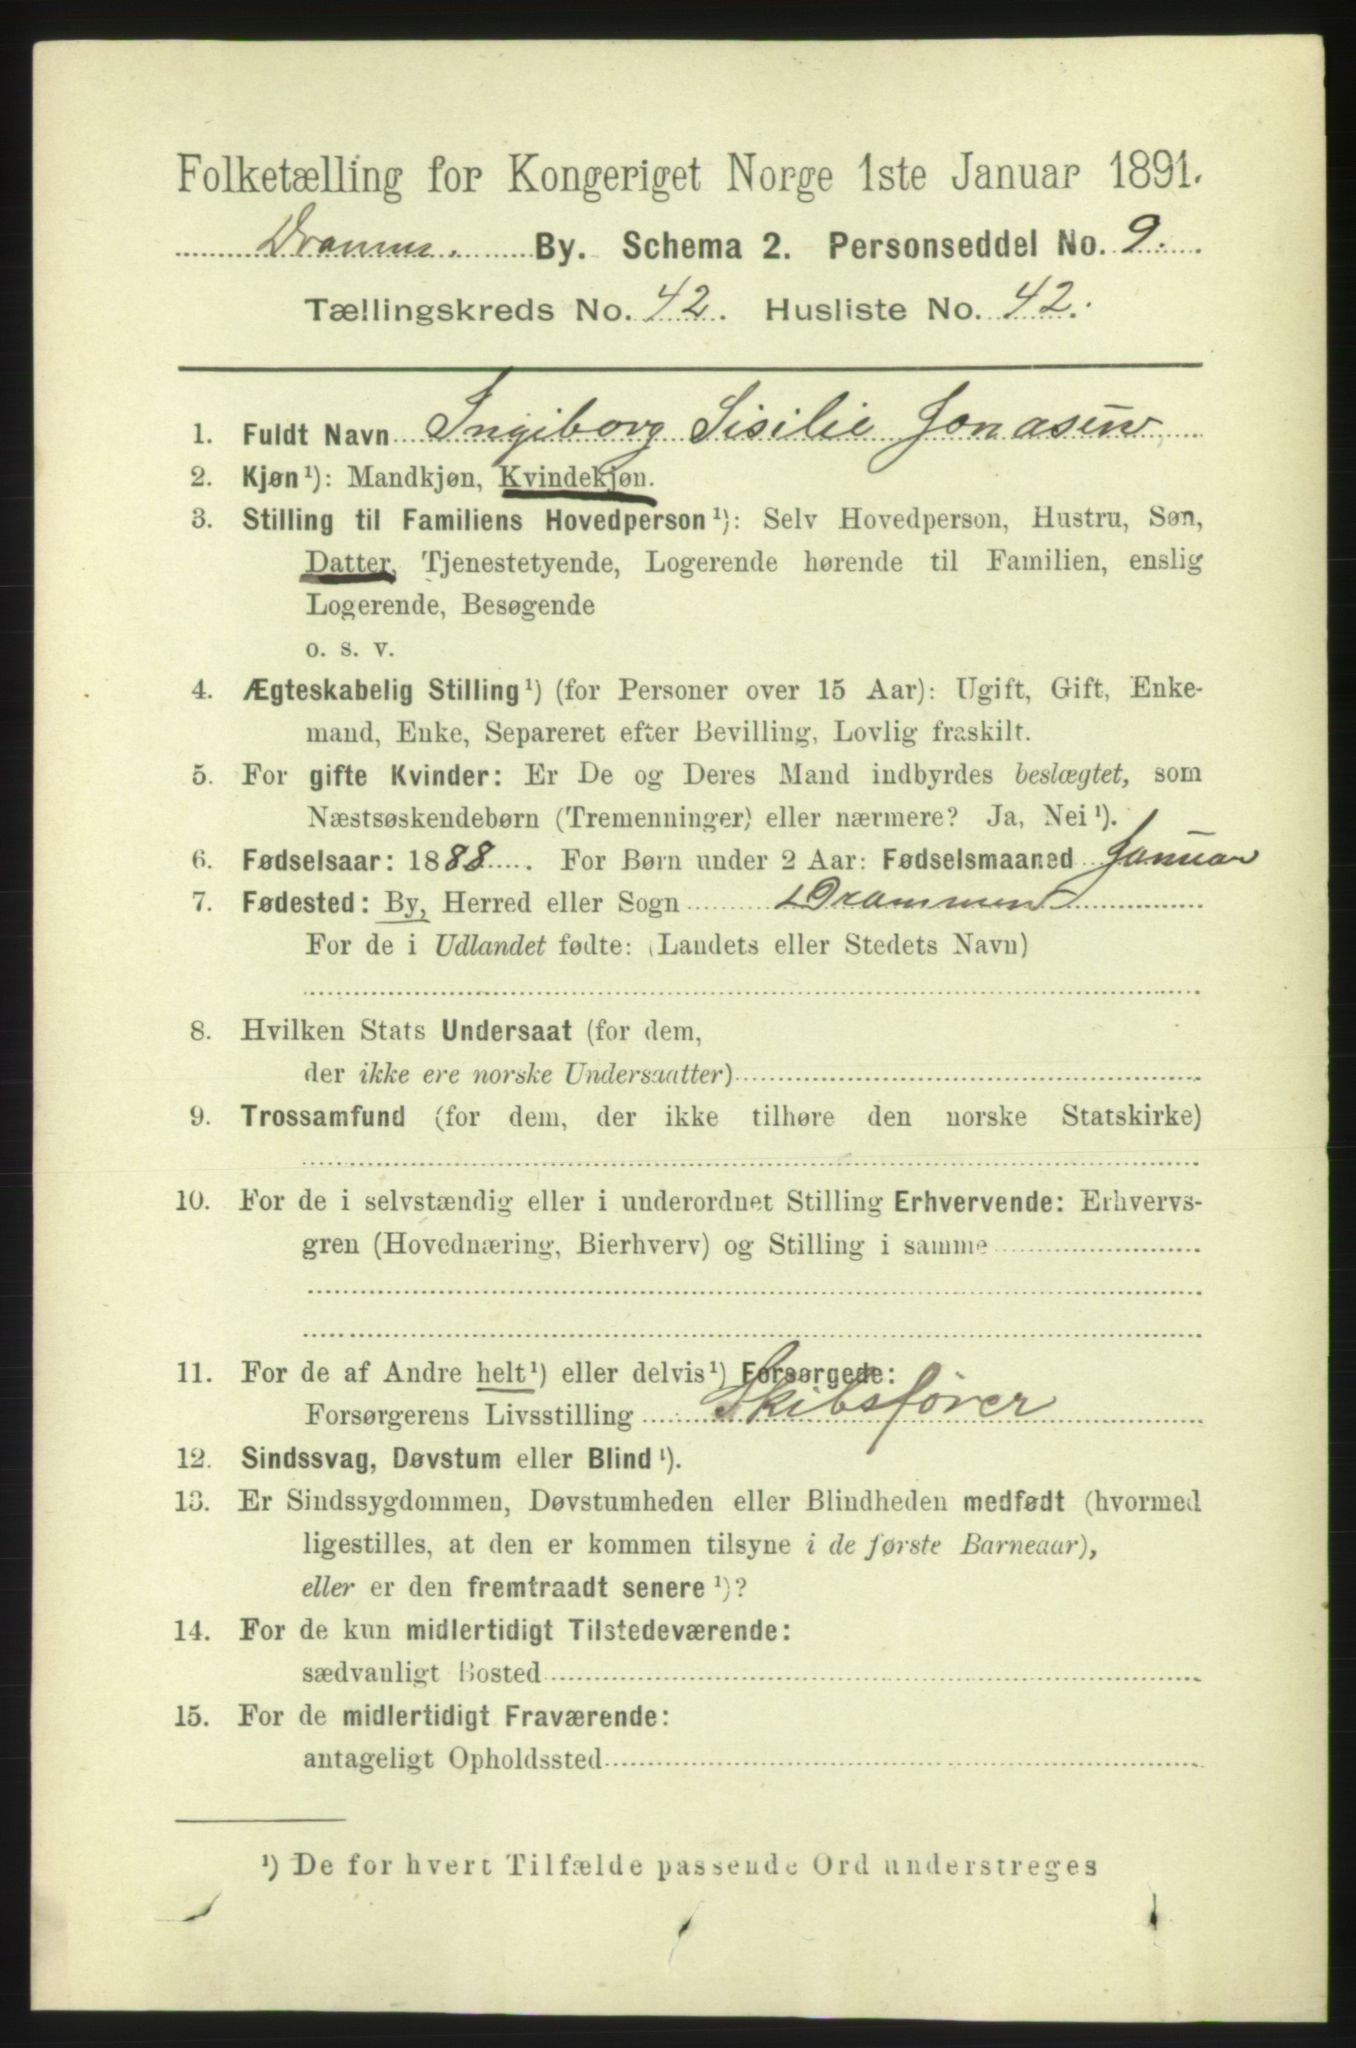 Folketælling for Kongeriget Norge 1ste Januar 1891.
Drammen. By. Schema 2. Personseddel No. 9.
Tællingskreds No. 42. Husliste No. 42.
1. Fuldt Navn Ingiborg Sisilie Jonasen
2. Kjøn¹): Mandkjøn, Kvindekjøn.
3. Stilling til Familiens Hovedperson¹): Selv Hovedperson, Hustru, Søn,
Datter, Tjenestetyende, Logerende hørende til Familien, enslig
Logerende, Besøgende
o. s. v.
4. Ægteskabelig Stilling¹) (for Personer over 15 Aar): Ugift, Gift, Enke-
mand, Enke, Separeret efter Bevilling, Lovlig fraskilt.
5. For gifte Kvinder: Er De og Deres Mand indbyrdes beslægtet, som
Næstsøskendebørn (Tremenninger) eller nærmere? Ja, Nei¹).
6. Fødselsaar: 1888. For Børn under 2 Aar: Fødselsmaaned Januar
7. Fødested: By, Herred eller Sogn Drammen
For de i Udlandet fødte: (Landets eller Stedets Navn)
8. Hvilken Stats Undersaat (for dem,
der ikke ere norske Undersaatter)
9. Trossamfund (for dem, der ikke tilhøre den norske Statskirke)
10. For de i selvstændig eller i underordnet Stilling Erhvervende: Erhvervs-
gren (Hovednæring, Bierhverv) og Stilling i samme
11. For de af Andre helt¹) eller delvis¹) Forsørgede:
Forsørgerens Livsstilling Skibsfører
12. Sindssvag, Døvstum eller Blind¹).
13. Er Sindssygdommen, Døvstumheden eller Blindheden medfødt (hvormed
ligestilles, at den er kommen tilsyne i de første Barneaar),
eller er den fremtraadt senere¹)?
14. For de kun midlertidigt Tilstedeværende:
sædvanligt Bosted
15. For de midlertidigt Fraværende:
antageligt Opholdssted
¹) De for hvert Tilfælde passende Ord understreges